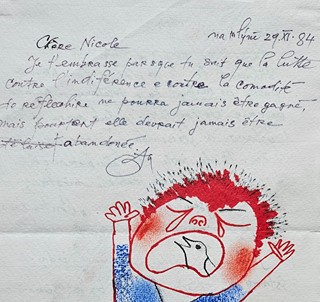 na mlýně 29.XI.84
Chère Nicole
Je t'embrasse parsque tu sait que la lutte
contre l'indiférence e contre la comodité
de reflechire ne pourra jamais être gagné,
mais pourtant elle devrait jamais être
abandonée.